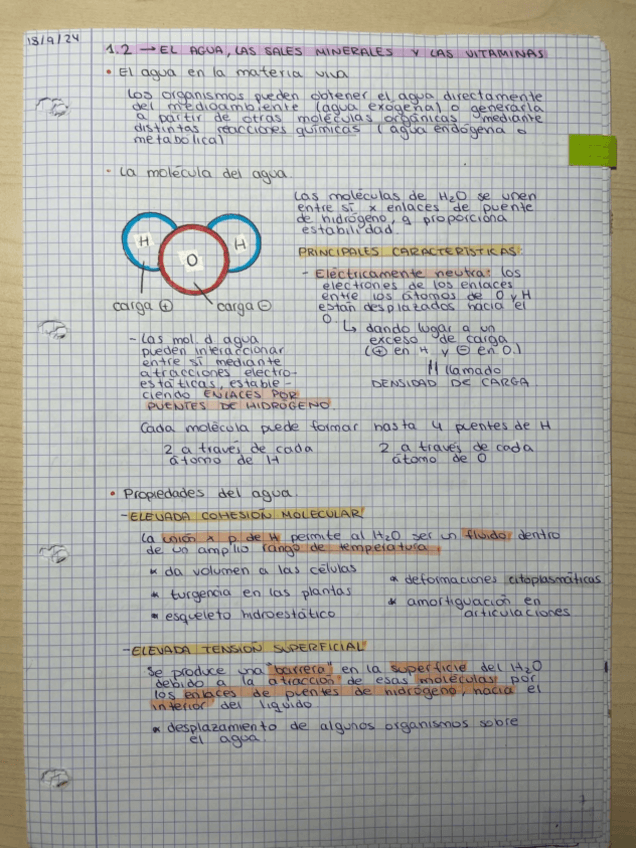 18/9/24
1.2 → EL AGUA, LAS SALES MINERALES Y LAS VITAMINAS
• El agua en la materia viva
Los organismos pueden obtener el agua directamente
del medioambiente (agua exógena) o generarla
a partir de otras moléculas orgánicas mediante
distintas reacciones químicas (agua endógena o
metabólica)
• La molécula del agua
Las moléculas de H2O se unen
entre sí x enlaces de puente
de hidrógeno, q proporciona
estabilidad.
H
O
H
carga ⊕
carga ⊖
PRINCIPALES CARACTERÍSTICAS:
- Eléctricamente neutra: los
electrones de los enlaces
entre los átomos de O y H
están desplazados hacia el
O.
↳ dando lugar a un
exceso de carga
(⊕ en H y ⊖ en O.)
// llamado
DENSIDAD DE CARGA
- Las mol. d agua
pueden interaccionar
entre sí mediante
atracciones electro-
estáticas, estable-
ciendo ENLACES POR
PUENTES DE HIDRÓGENO.
Cada molécula puede formar hasta 4 puentes de H
2 a través de cada
átomo de H
2 a través de cada
átomo de O
• Propiedades del agua.
- ELEVADA COHESIÓN MOLECULAR
La unión x p. de H permite al H2O ser un fluido dentro
de un amplio rango de temperatura.
* da volumen a las células
* turgencia en las plantas
* esqueleto hidroestático
* deformaciones citoplasmáticas
* amortiguación en
articulaciones
- ELEVADA TENSIÓN SUPERFICIAL
Se produce una "barrera" en la superficie del H2O
debido a la atracción de esas moléculas por
los enlaces de puentes de hidrógeno, hacia el
interior del líquido
* desplazamiento de algunos organismos sobre
el agua.
1